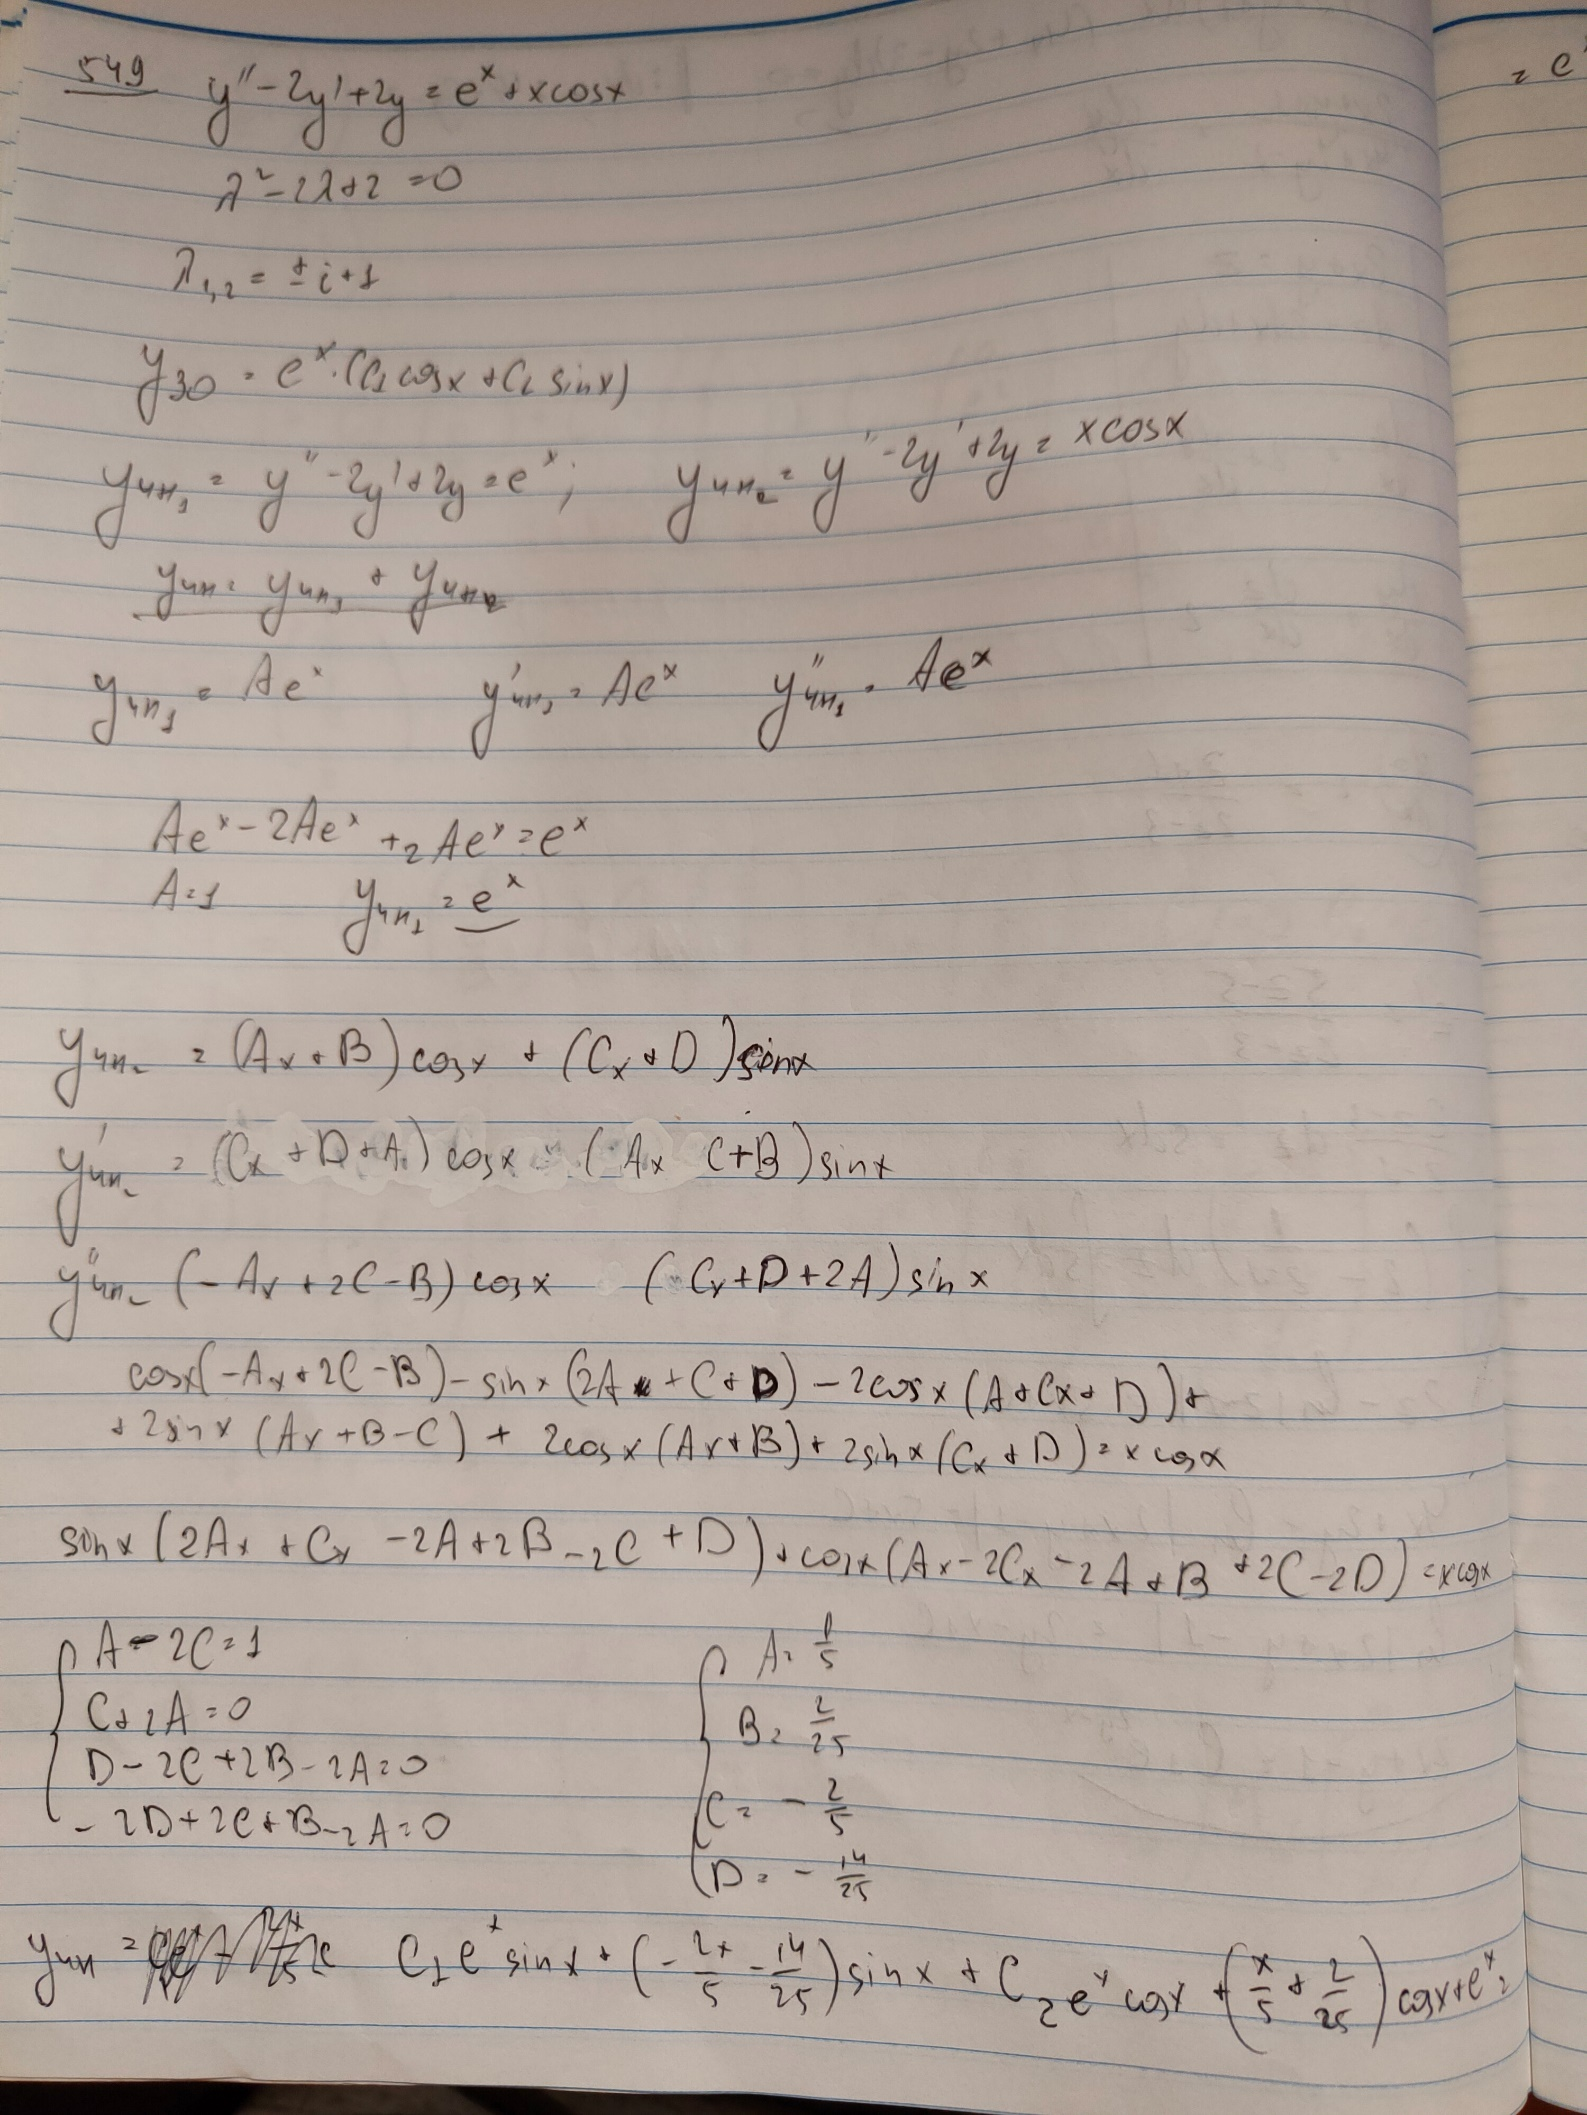 549 y'' - 2y' + 2y = e^x + xcosx
= e^x
λ² - 2λ + 2 = 0
λ₁,₂ = ± i + 1
y₃₀ = e^x · (C₁ cosx + C₂ sinx)
yчн₁ = y'' - 2y' + 2y = e^x ; yчн₂ = y'' - 2y' + 2y = xcosx
yчн = yчн₁ + yчн₂
yчн₁ = Ae^x y'чн₁ = Ae^x y''чн₁ = Ae^x
Ae^x - 2Ae^x + 2Ae^x = e^x
A = 1 yчн₁ = e^x
yчн₂ = (Ax + B) cosx + (Cx + D) sinx
y'чн₂ = (Cx + D + A) cosx (Ax C + B) sinx
y''чн₂ (-Ax + 2C - B) cosx (Cx + D + 2A) sin x
cosx(-Ax + 2C - B) - sinx (2A + C + D) - 2cosx (A + Cx + D) +
+ 2sinx (Ax + B - C) + 2cosx (Ax + B) + 2sinx (Cx + D) = x cosx
sinx (2Ax + Cx - 2A + 2B - 2C + D) + cosx (Ax - 2Cx - 2A + B + 2C - 2D) = xcosx
A - 2C = 1 A = 1/5
C + 2A = 0 B = 2/25
D - 2C + 2B - 2A = 0 C = - 2/5
- 2D + 2C + B - 2A = 0 D = - 14/25
yчн = C₁ e^x sinx + (- 2x/5 - 14/25) sinx + C₂ e^x cosx + (x/5 + 2/25) cosx + e^x =